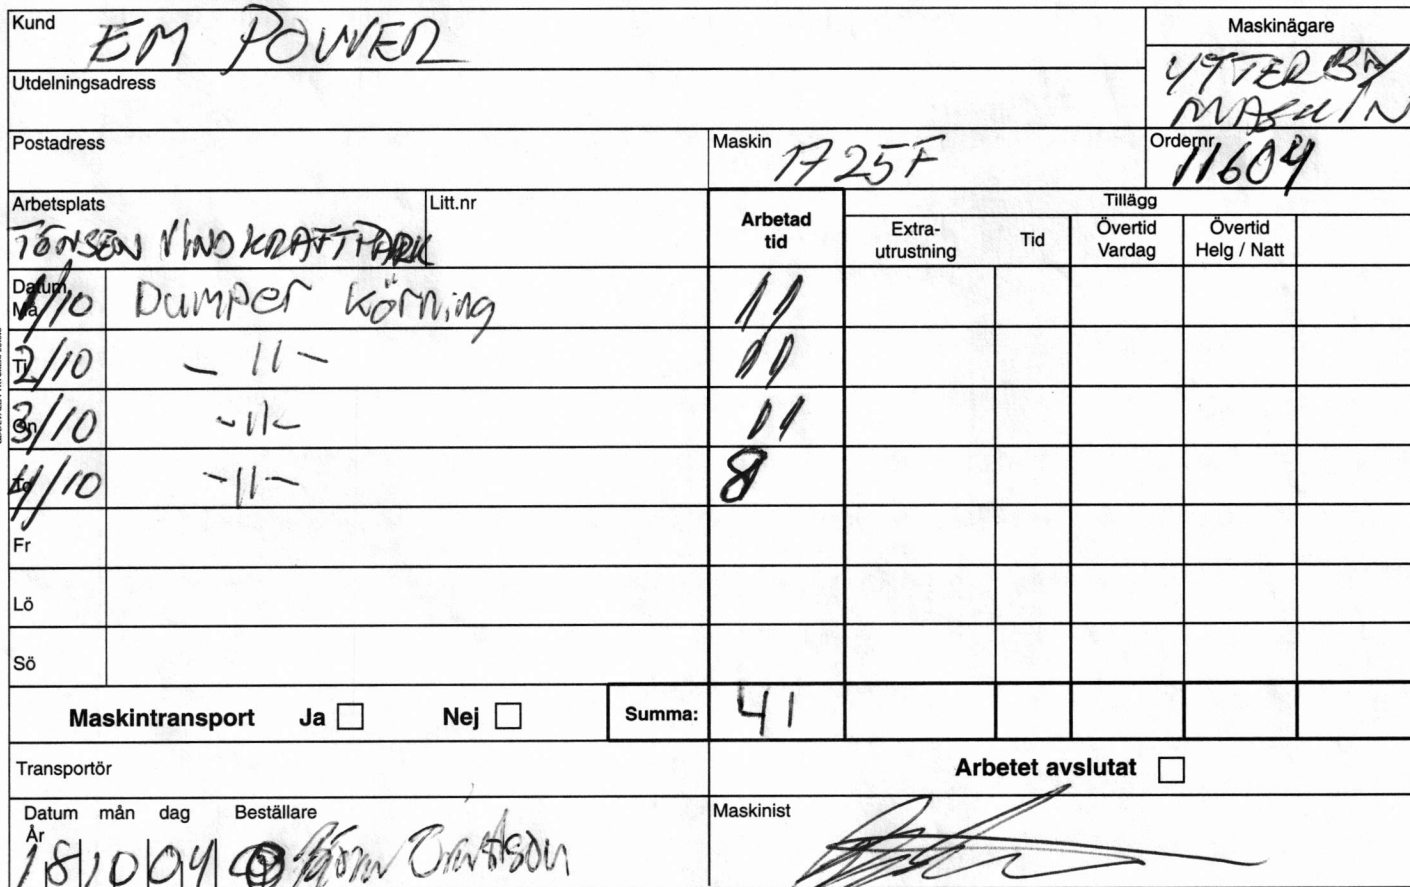 Kund EM POWER
Maskinägare
YTTERBY
MASKIN
Utdelningsadress
Postadress
Maskin 1725F
Ordernr 11604
Arbetsplats
TÖNSEN VINDKRAFTPARK
Litt.nr
Arbetad tid
Tillägg
Extra-utrustning
Tid
Övertid Vardag
Övertid Helg / Natt
Datum
Må 1/10 Dumper Körning 11
Ti 2/10 - 11 - 11
On 3/10 - 11 - 11
To 4/10 - 11 - 8
Fr
Lö
Sö
Maskintransport Ja Nej Summa: 41
Transportör
Arbetet avslutat
Datum mån dag Beställare
År
18 10 04 Björn
Maskinist